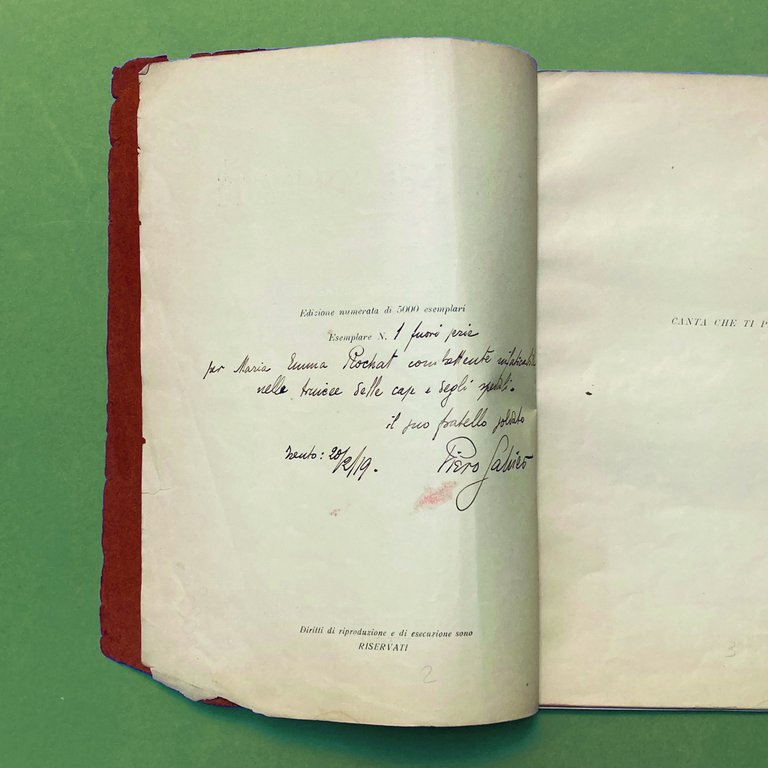 Edizione numerata di 5000 esemplari
Esemplare N. 1 fuori
per Maria Emma Rochat combattente
nelle trincee delle case e degli spedali.
il suo fratello soldato
Trento: 20/2/19. Piero Jahier
Diritti di riproduzione e di esecuzione sono
RISERVATI
2
CANTA CHE TI P
3